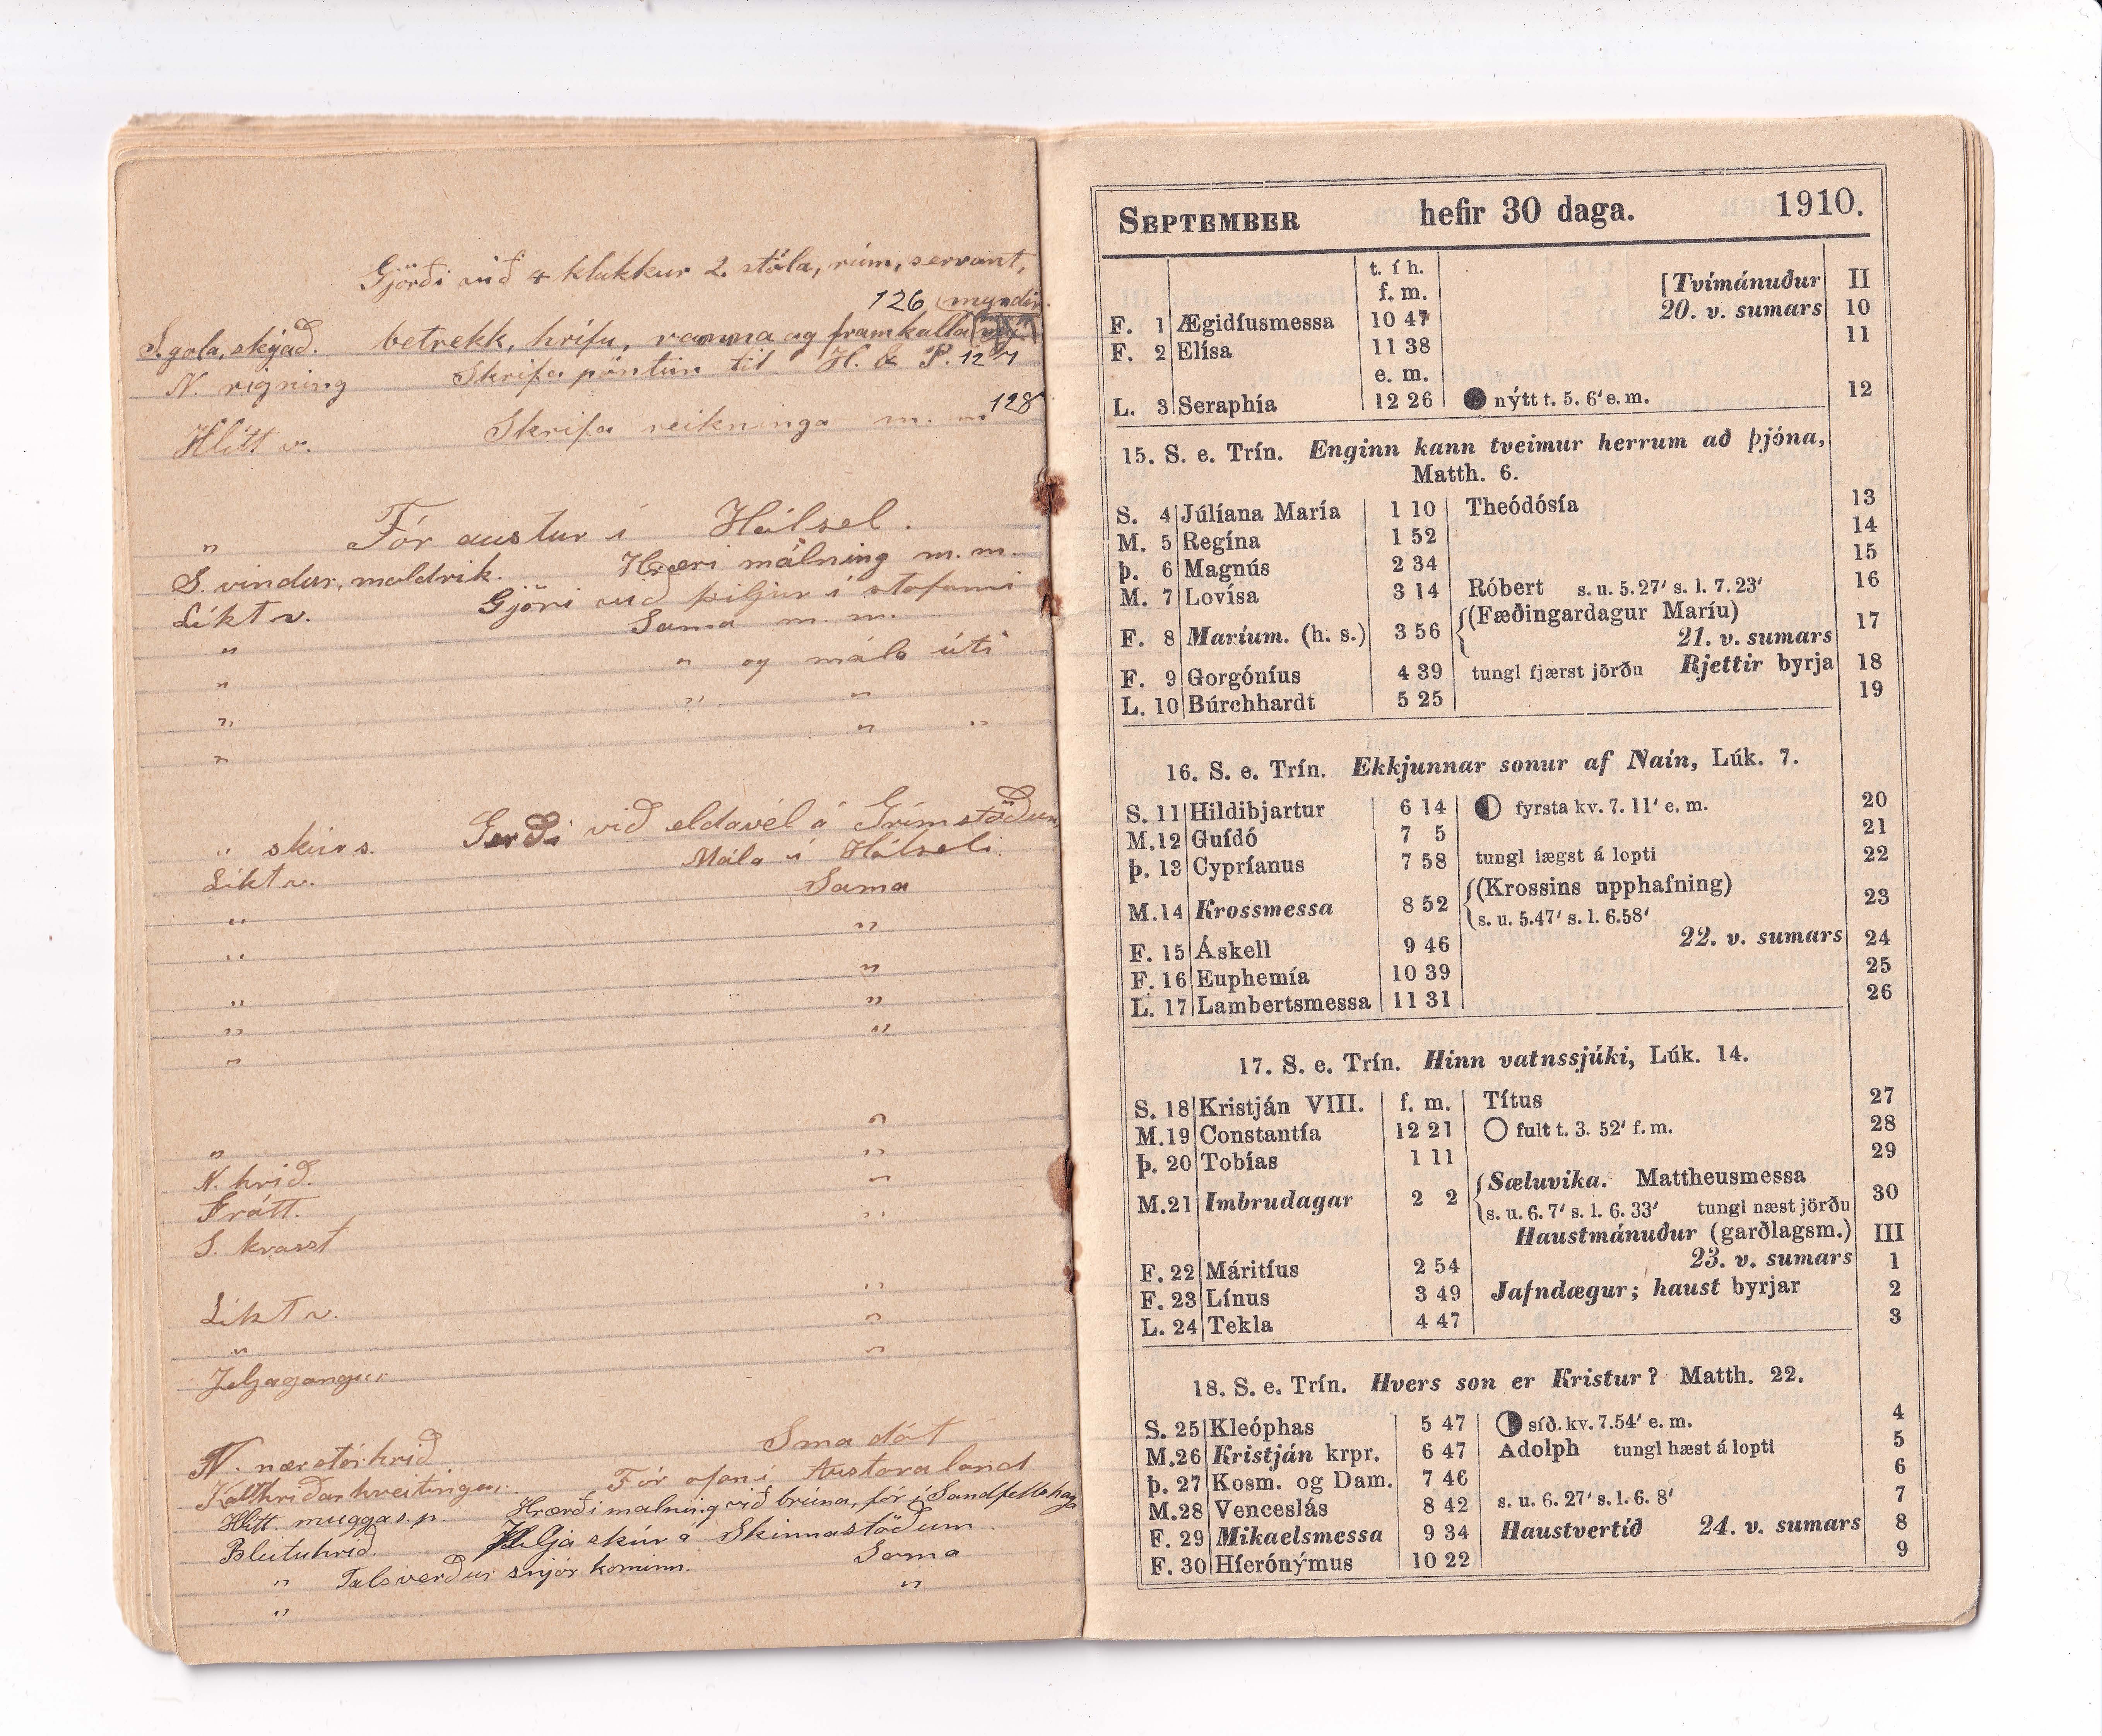 Gjörði við 4 klukkur 2 stóla, rúm, servant,
126 myndir.
S. gola, skýað. betrekk, hrífu, ramma og framkalla
N. rigning Skrifa pöntun til H. & P. 127
128
Hlítt v. Skrifa reikninga m. m.
" Fór austur í Hólsel.
S. vindur, moldrik. Hræri málning m. m.
Líkt v. Gjöri við þiljur í stofunni
" Sama m. m.
" " og mála úti
" " "
" " "
" skúrs. Gerði við eldavél á Grímstöðum
Líkt v. Mála í Hólseli
" Sama
" "
" "
" "
" "
" "
N. hríð. "
Frátt. "
S. hvasst "
Líkt v. "
" "
Jeljagangur "
N. nær stórhríð Sma dót
Fór ofaní Austara land
Hlítt. mugga s.p. Hrærði málning við brúna, fór í Sandfellshaga
Bleituhríð. Vilja skúr á Skinnastöðum
" Talsverður snjór kominn. Sama
" "
SEPTEMBER hefir 30 daga. 1910.
t. í h. [Tvímánuður II
f. m. 20. v. sumars 10
F. 1 Ægidíusmessa 10 47
F. 2 Elísa 11 38 11
e. m.
L. 3 Seraphía 12 26 nýtt t. 5. 6' e. m. 12
15. S. e. Trín. Enginn kann tveimur herrum að þjóna,
Matth. 6.
S. 4 Júlíana María 1 10 Theódósía 13
M. 5 Regína 1 52 14
Þ. 6 Magnús 2 34 15
M. 7 Lovísa 3 14 Róbert s. u. 5.27' s. l. 7.23' 16
(Fæðingardagur Maríu)
F. 8 Maríum. (h. s.) 3 56 21. v. sumars 17
F. 9 Gorgóníus 4 39 tungl fjærst jörðu Rjettir byrja 18
L. 10 Búrchhardt 5 25 19
16. S. e. Trín. Ekkjunnar sonur af Naín, Lúk. 7.
S. 11 Hildibjartur 6 14 fyrsta kv. 7. 11' e. m. 20
M. 12 Guídó 7 5 21
Þ. 13 Cypríanus 7 58 tungl lægst á lopti 22
(Krossins upphafning)
M. 14 Krossmessa 8 52 s. u. 5.47' s. l. 6.58' 23
F. 15 Áskell 9 46 22. v. sumars 24
F. 16 Euphemía 10 39 25
L. 17 Lambertsmessa 11 31 26
17. S. e. Trín. Hinn vatnssjúki, Lúk. 14.
S. 18 Kristján VIII. f. m. Títus 27
M. 19 Constantía 12 21 fult t. 3. 52' f. m. 28
Þ. 20 Tobías 1 11 29
Sæluvika. Mattheusmessa
M. 21 Imbrudagar 2 2 s. u. 6. 7' s. l. 6. 33' tungl næst jörðu 30
Haustmánuður (garðlagsm.) III
F. 22 Márítíus 2 54 23. v. sumars 1
F. 23 Línus 3 49 Jafndægur; haust byrjar 2
L. 24 Tekla 4 47 3
18. S. e. Trín. Hvers son er Kristur? Matth. 22.
S. 25 Kleóphas 5 47 síð. kv. 7.54' e. m. 4
M. 26 Kristján krpr. 6 47 Adolph tungl hæst á lopti 5
Þ. 27 Kosm. og Dam. 7 46 6
M. 28 Venceslás 8 42 s. u. 6. 27' s. l. 6. 8' 7
F. 29 Mikaelsmessa 9 34 Haustvertíð 24. v. sumars 8
F. 30 Híerónýmus 10 22 9